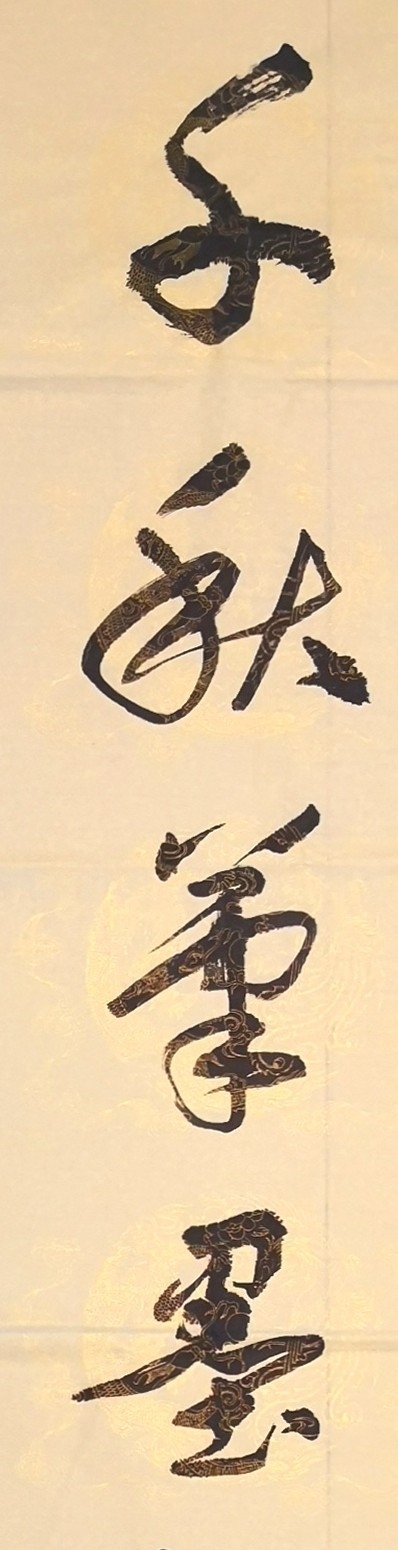 千秋筆墨